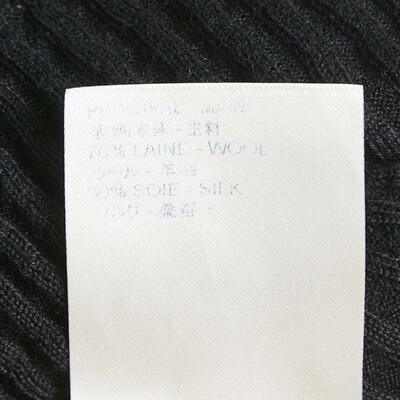 PRINCIPAL - MAIN
表面/本体 - 主料
70% LAINE - WOOL
ウール - 羊毛
30% SOIE - SILK
シルク -